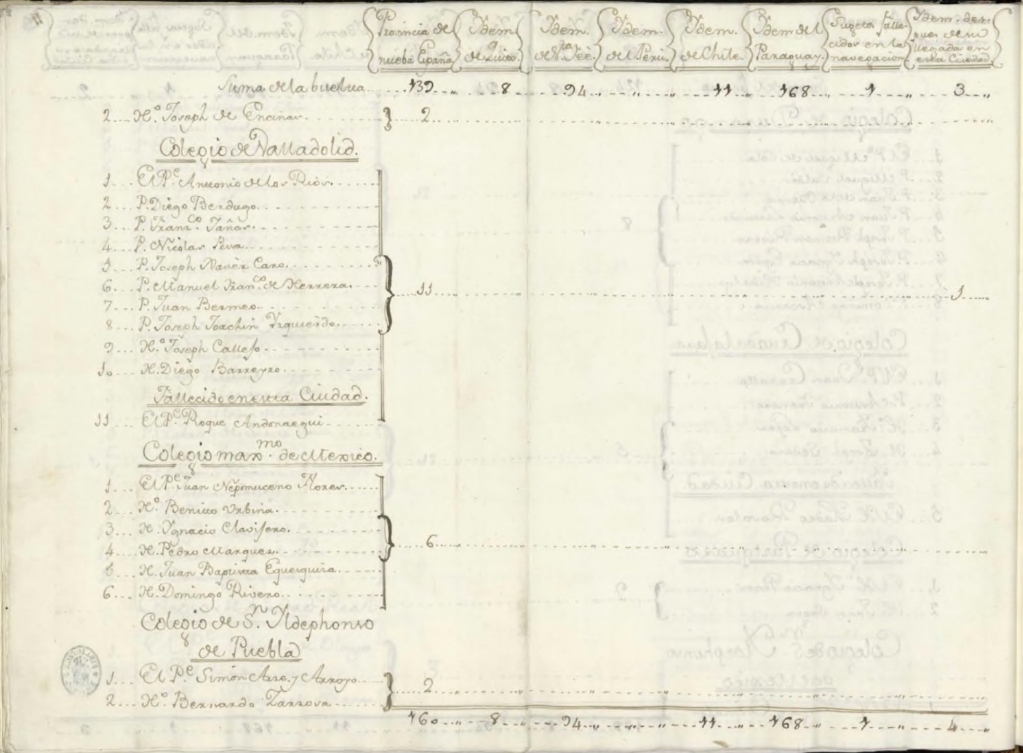 Provincia de nueba España Ydem. de Quito. Ydem. de N.ta Fee. Ydem. del Perù. Ydem. de Chile. Ydem del Paraguay. Sugetos falle-cidos en la navegacion. Ydem. des-pues de su llegada en esta Ciudad.
Suma de la buelta .... 139 .. 8 .. 94 .. 11 .. 168 .. 1 .. 3 ..
2... H.º Joseph de Encinas. } 2
Colegio de Valladolid.
1... El P.e Antonio de los Rios.
2... P. Diego Berdugo.
3... P. Fran.co
4... P. Nicolas
5... P. Joseph Xavièr Caro.
6... P. Manuel Fran.co de Herrera. } 11 .. 1 ..
7... P. Juan Bermeo.
8... P. Joseph Joachin Yzquierdo.
9... H.º Joseph Callejo.
10... H. Diego Barreyro.
Fallecido en esta Ciudad.
11... El P.e Roque Andonaegui.
Colegio max.mo de Mexico.
1... El P.e Juan Nepomuceno Flores.
2... H.º Benito Urbina.
3... H. Ygnacio Clavijero.
4... H. Pedro Marquez. } 6
5... H. Juan Baptista Eguiguira.
6... H. Domingo Rivero.
Colegio de S.n Yldephonso
de Puebla
1... El P.e Simón Arroyo
2... H.º Bernardo } 2
160 .. 8 .. 94 .. 11 .. 168 .. 1 .. 4 ..